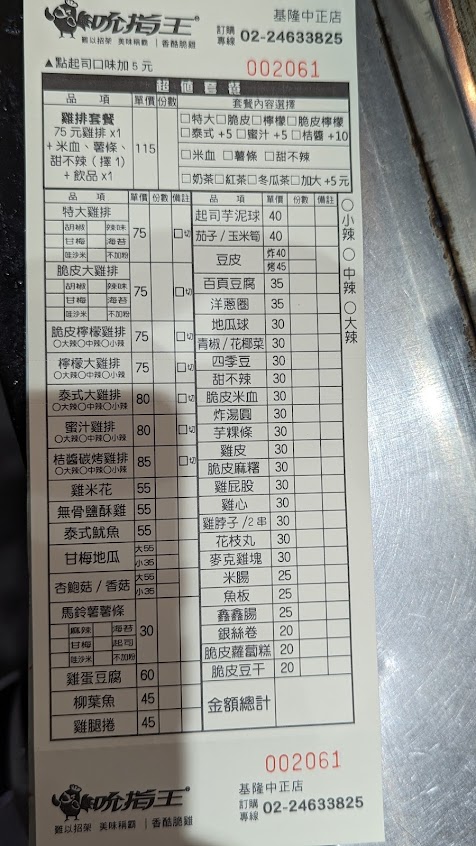 吮指王
難以招架 美味稱霸 | 香酷脆雞
基隆中正店
訂購專線 02-24633825
▲點起司口味加 5 元
002061
超值套餐
品 項 單價 份數 套餐內容選擇
雞排套餐
75 元雞排 x1
+ 米血、薯條、
甜不辣 ( 擇 1)
+ 飲品 x1
115
□特大□脆皮□檸檬□脆皮檸檬
□泰式 +5 □蜜汁 +5 □桔醬 +10
□米血 □薯條 □甜不辣
□奶茶□紅茶□冬瓜茶□加大 +5 元
品 項 單價 份數 備註
特大雞排 75 □切
胡椒 辣味
甘梅 海苔
不加粉
脆皮大雞排 75 □切
胡椒 辣味
甘梅 海苔
不加粉
脆皮檸檬雞排 75 □切
○大辣○中辣○小辣
檸檬大雞排 75 □切
○大辣○中辣○小辣
泰式大雞排 80 □切
○大辣○中辣○小辣
蜜汁雞排 80 □切
○大辣○中辣○小辣
桔醬碳烤雞排 85 □切
○大辣○中辣○小辣
雞米花 55
無骨鹽酥雞 55
泰式魷魚 55
甘梅地瓜 大55 小35
杏鮑菇 / 香菇 大55 小35
馬鈴薯薯條 30
麻辣 海苔
甘梅 起司
不加粉
雞蛋豆腐 60
柳葉魚 45
雞腿捲 45
品 項 單價 份數 備註
起司芋泥球 40
茄子 / 玉米筍 40
豆皮 炸40 烤45
百頁豆腐 35
洋蔥圈 35
地瓜球 30
青椒 / 花椰菜 30
四季豆 30
甜不辣 30
脆皮米血 30
炸湯圓 30
芋粿條 30
雞皮 30
脆皮麻糬 30
雞屁股 30
雞心 30
雞脖子 /2 串 30
花枝丸 30
麥克雞塊 30
米腸 25
魚板 25
鑫鑫腸 25
銀絲卷 20
脆皮蘿蔔糕 20
脆皮豆干 20
金額總計
○小辣 ○中辣 ○大辣
002061
吮指王
難以招架 美味稱霸 | 香酷脆雞
基隆中正店
訂購專線 02-24633825